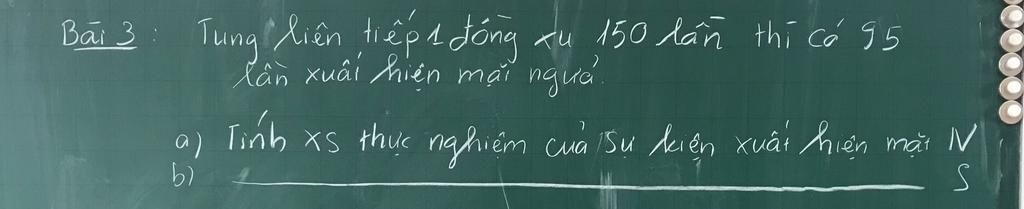 Bài 3: Tung liên tiếp 1 đồng xu 150 lần thì có 95
lần xuất hiện mặt ngửa.
a) Tính XS thực nghiệm của sự kiện xuất hiện mặt N
b) ____________________ S